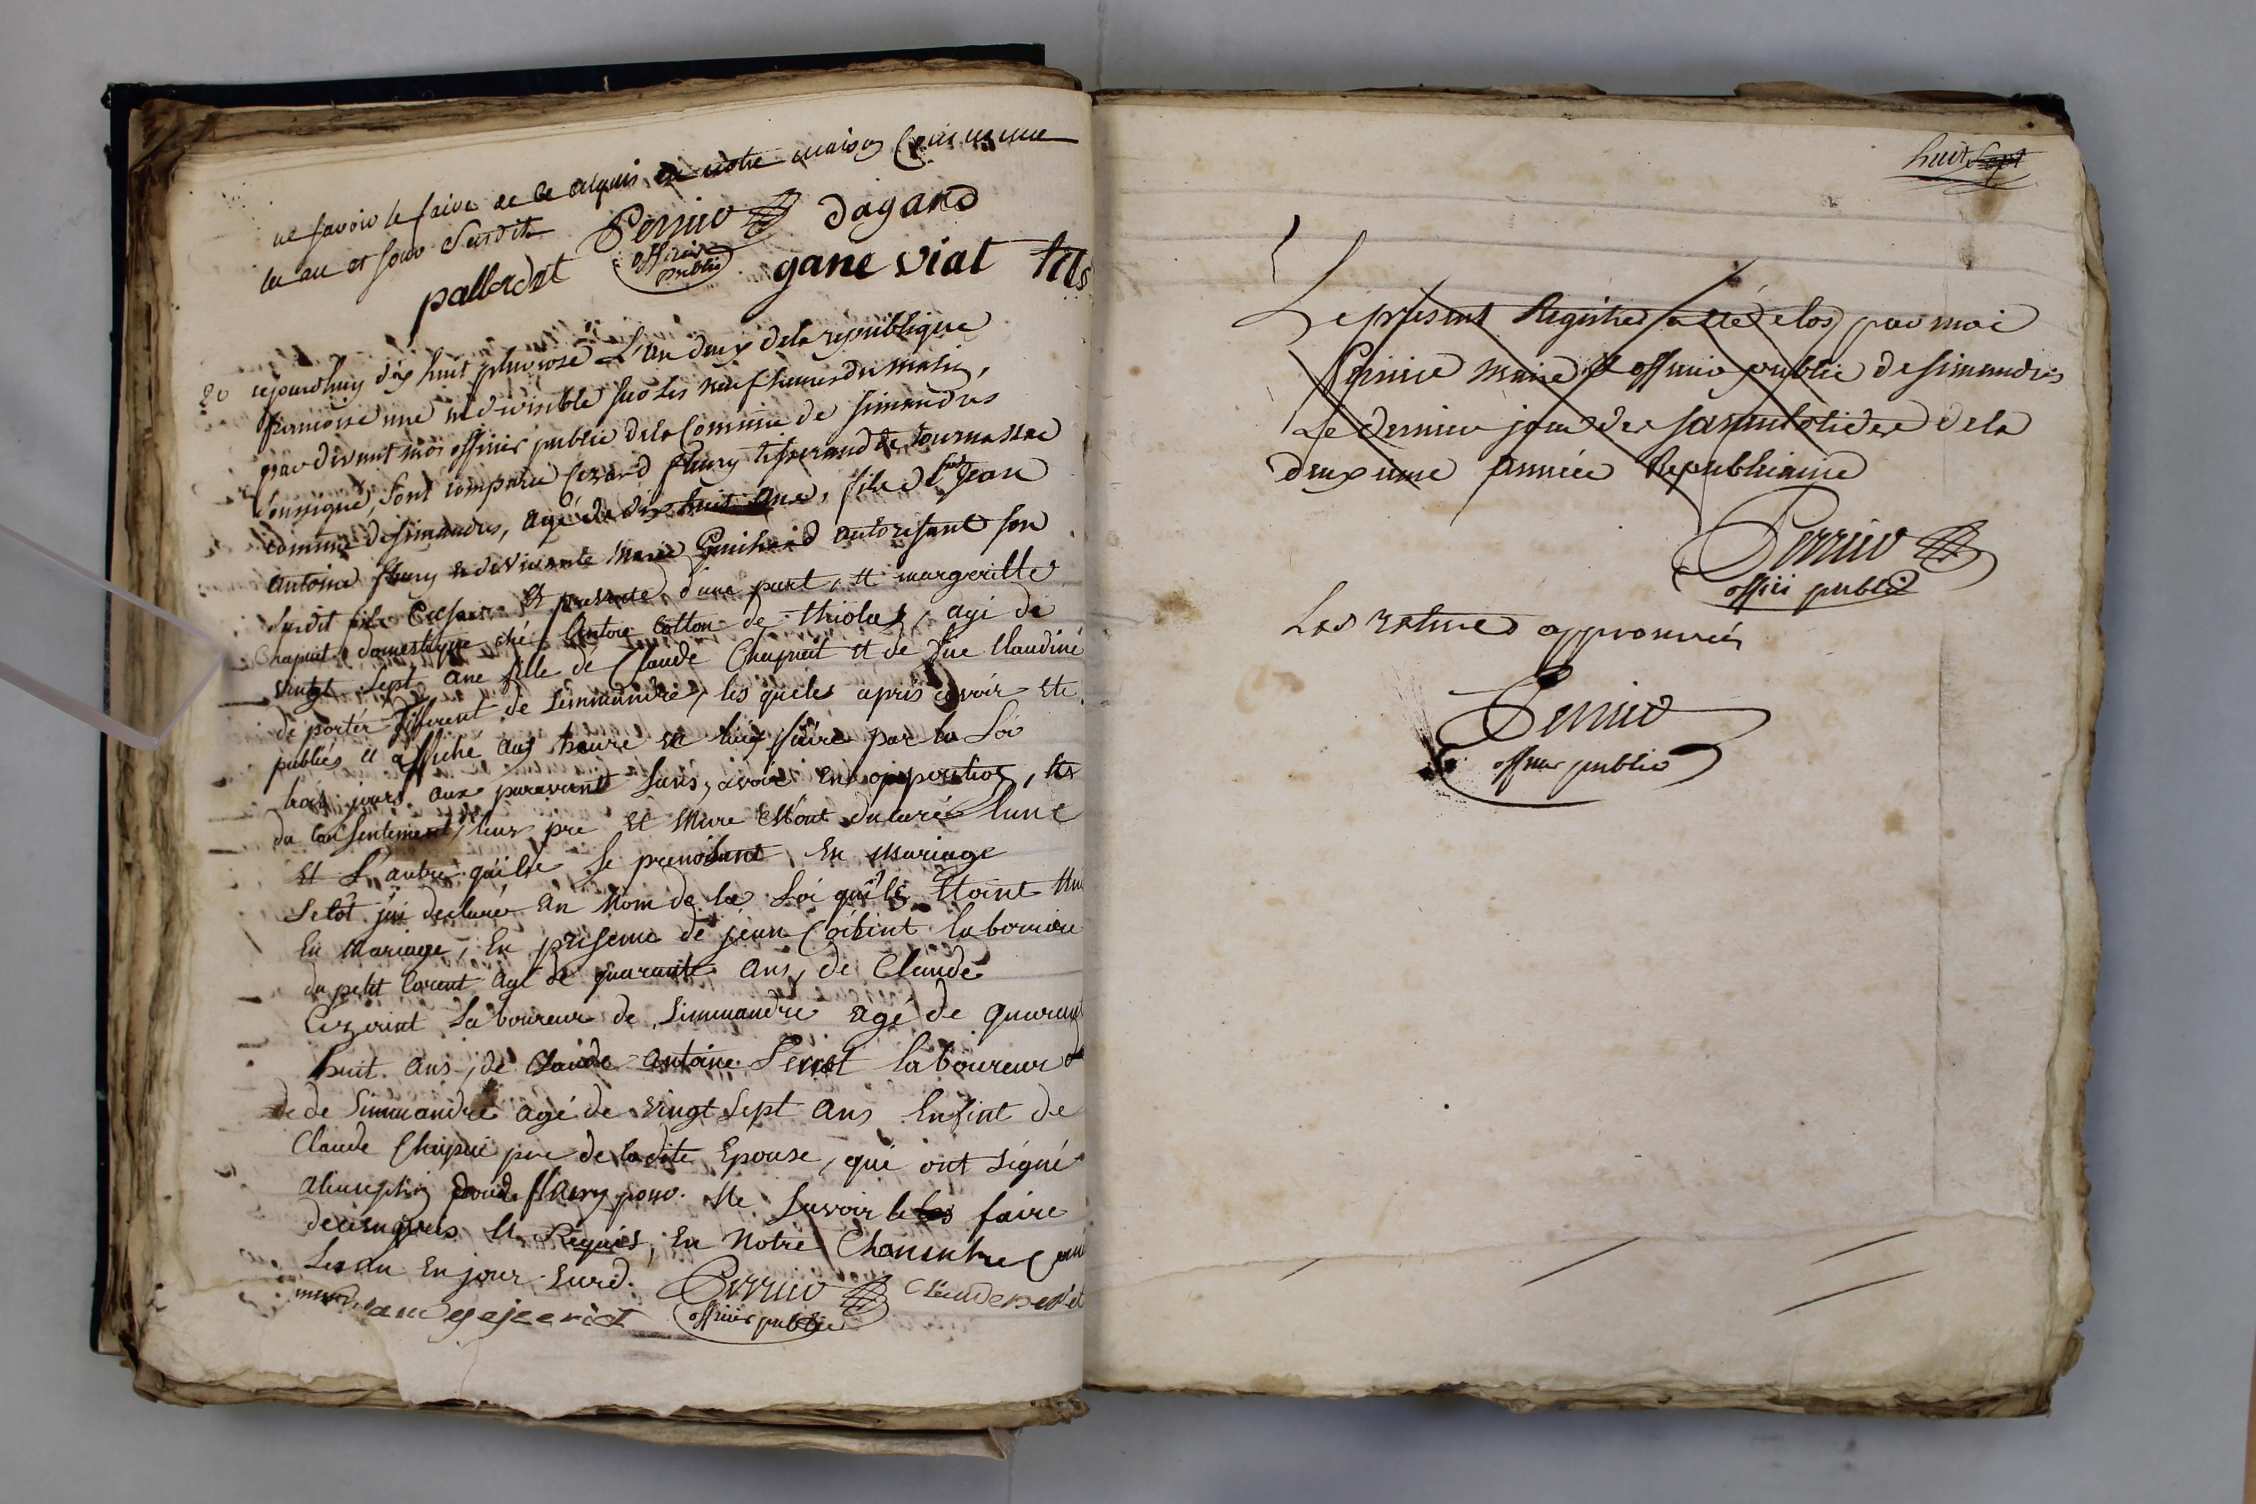 ne savoir le faire de ce enquis en notre maison Commune
les an et jour Susdits
Perrier dagand
officier public
pallordet ganeviat fils
20 cejourdhuy dix huit pluviose L'an deux de la republique
francoise une indivisible sur les neuf heures du matin,
par devant moi officier public dela Commune de simandres
soussigné, sont comparu Cezard fleury tisserand de tournassac
commune de simandres, agé de dix huit ans, fils d feu Jean
antoine fleury et de vivante Marie Guichard autorisant son
susdit fils Cesar et presente d'une part, et margeritte
Chapuit domestique ché Antoine Cotton de thiolas, agé de
vingt sept ans fille de Claude Chapuit et de feue Claudine
de portér different de Simmandre, les queles après avoir eté
publiés et affiché aux heure et lieux fixée par la Loi
huit jours aux paravant sans avoir eu opposition, et
du consentement de leur pre et mere estont declarée l'une
et L'autre qu'ils se prenoisant en mariage
Sitôt j'ai declarée au Nom de la Loi qu'ils étoint uni
En Mariage, En presence de jean laboureur
du petit Corent agé de quarante ans, de Claude
laboureur de Simmandre agé de quarant
huit ans, de Claude antoine Perret laboureur
de de Simmandre agé de vingt sept ans Enfint de
Claude Chapui pere de la dite Epouse, qui ont signé
a l'exception dud. fleury pour ne savoir le les faire
de ce enquis et Requis, En Notre Chambre Com
Les an en jour susd.
Perrier
officier public
Claude perret
huit sept
Le présent Registre a été clos par moi
Perrier Maire et officier public de simandres
Le dernier jour des sanculotides dela
deuxieme année Republicaine
Perrier
offici public
Les ratures approuvées
Perrier
officier public